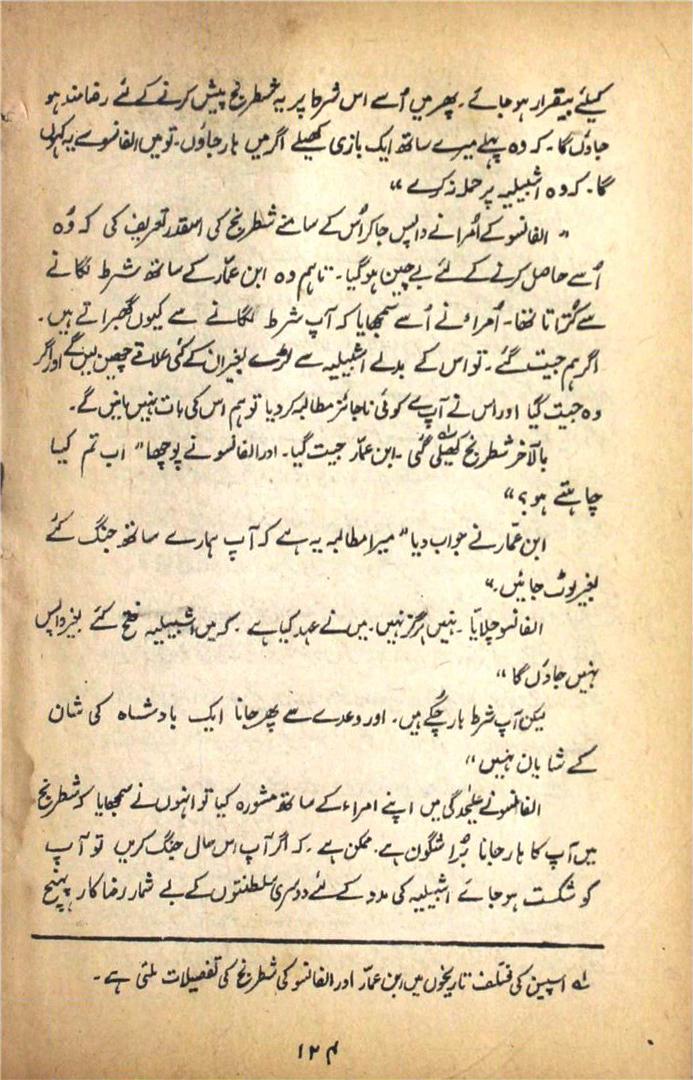 کیلئے بیقرار ہو جائے۔ پھر میں اُسے اس شرط پر یہ شطرنج پیش کرنے کے لئے رضامند ہو
جاؤں گا۔ کہ وہ پہلے میرے ساتھ ایک بازی کھیلے اگر میں ہار جاؤں۔ تو میں الفانسو سے یہ کہوں
گا۔ کہ وہ اشبیلیہ پر حملہ نہ کرے“
” الفانسو کے اُمرا نے واپس جا کر اُس کے سامنے شطرنج کی اسقدر تعریف کی کہ وُہ
اُسے حاصل کرنے کے لئے بے چین ہو گیا۔ تاہم وہ ابن عمّار کے ساتھ شرط لگانے
سے کتراتا تھا۔ اُمراء نے اُسے سمجھایا کہ آپ شرط لگانے سے کیوں گھبراتے ہیں۔
اگر ہم جیت گئے۔ تو اس کے بدلے اشبیلیہ سے لڑے بغیر ان کے کئی علاقے چھین لیں گے اور اگر
وہ جیت گیا اور اس نے آپ سے کوئی ناجائز مطالبہ کر دیا تو ہم اس کی بات نہیں مانیں گے۔
بالآخر شطرنج کھیلی گئی ؎۱۔ ابن عمّار جیت گیا۔ اور الفانسو نے پوچھا” اب تم کیا
چاہتے ہو؟“
ابن عمّار نے جواب دیا” میرا مطالبہ یہ ہے کہ آپ ہمارے ساتھ جنگ کئے
بغیر لوٹ جائیں۔“
الفانسو چلایا۔ نہیں ہرگز نہیں۔ میں نے عہد کیا ہے۔ کہ میں اشبیلیہ فتح کئے بغیر واپس
نہیں جاؤں گا“
لیکن آپ شرط ہار چُکے ہیں۔ اور وعدے سے پھر جانا ایک بادشاہ کی شان
کے شایان نہیں“
الفانسو نے علیٰحدگی میں اپنے امراء کے ساتھ مشورہ کیا تو انہوں نے سمجھایا کہ شطرنج
میں آپ کا ہار جانا بُرا شگون ہے۔ ممکن ہے۔ کہ اگر آپ اس سال جنگ کریں تو آپ
کو شکست ہو جائے اشبیلیہ کی مدد کے لئے دوسری سلطنتوں کے بے شمار رضا کار پہنچ
؎۱ اسپین کی مختلف تاریخوں میں ابن عمّار اور الفانسو کی شطرنج کی تفصیلات ملتی ہے۔
۱۲۴